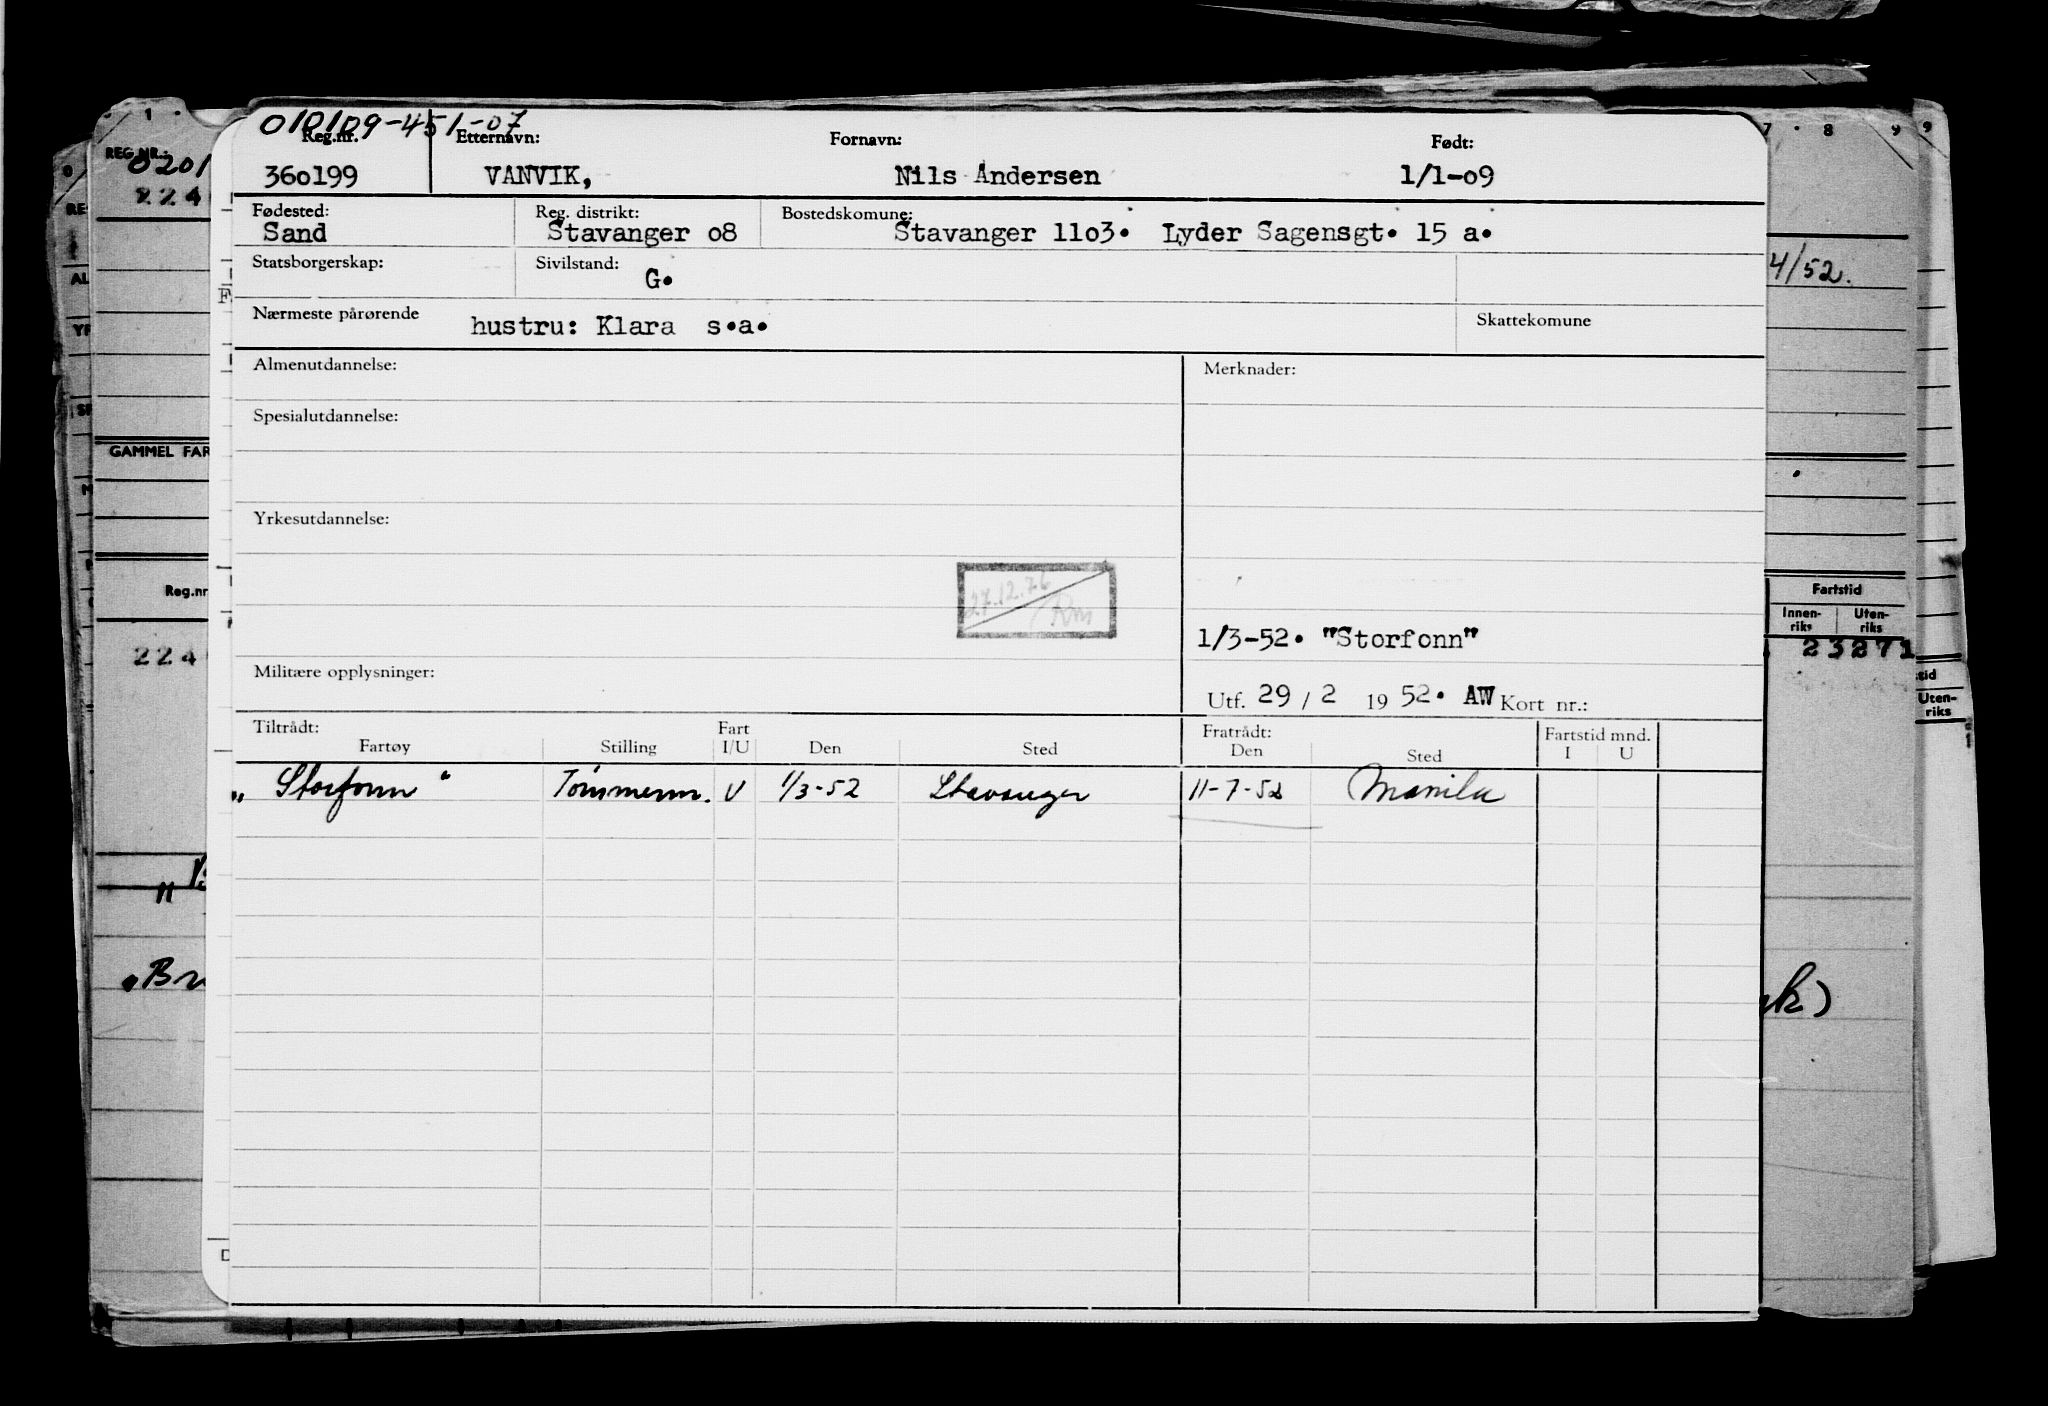 010109-451-07
Reg.nr. Etternavn: Fornavn: Født:
360199 VANVIK, Nils Andersen 1/1-09
Fødested: Reg. distrikt: Bostedskomune:
Sand Stavanger 08 Stavanger 1103. Lyder Sagensgt. 15 a.
Statsborgerskap: Sivilstand:
G.
Nærmeste pårørende hustru: Klara s.a. Skattekomune
Almenutdannelse: Merknader:
Spesialutdannelse:
Yrkesutdannelse:
27.12.76
1/3-52. "Storfonn"
Militære opplysninger:
Utf. 29 / 2 1952. AW Kort nr.:
Tiltrådt: Fart Fratrådt: Fartstid mnd.
Fartøy Stilling I/U Den Sted Den Sted I U
„ Storfonn " Tømmerm. U 1/3-52 Stavanger 11-7-52 Manila
REG.NR.:
0201
224
GAMMEL FAR
Reg.nr
224
"
„Br
7 8 9 9
4/52.
Fartstid
Innen-
riks
Uten-
riks
23271
Uten-
riks